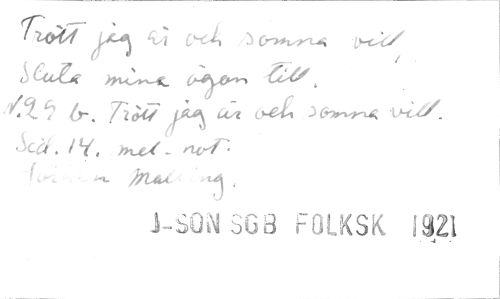 Trött jag är och somna vill,
Sluta mina ögon till.
N.29 b. Trött jag är och somna vill.
Sid. 14. mel-not.
Malling.
J-SON SGB FOLKSK 1921